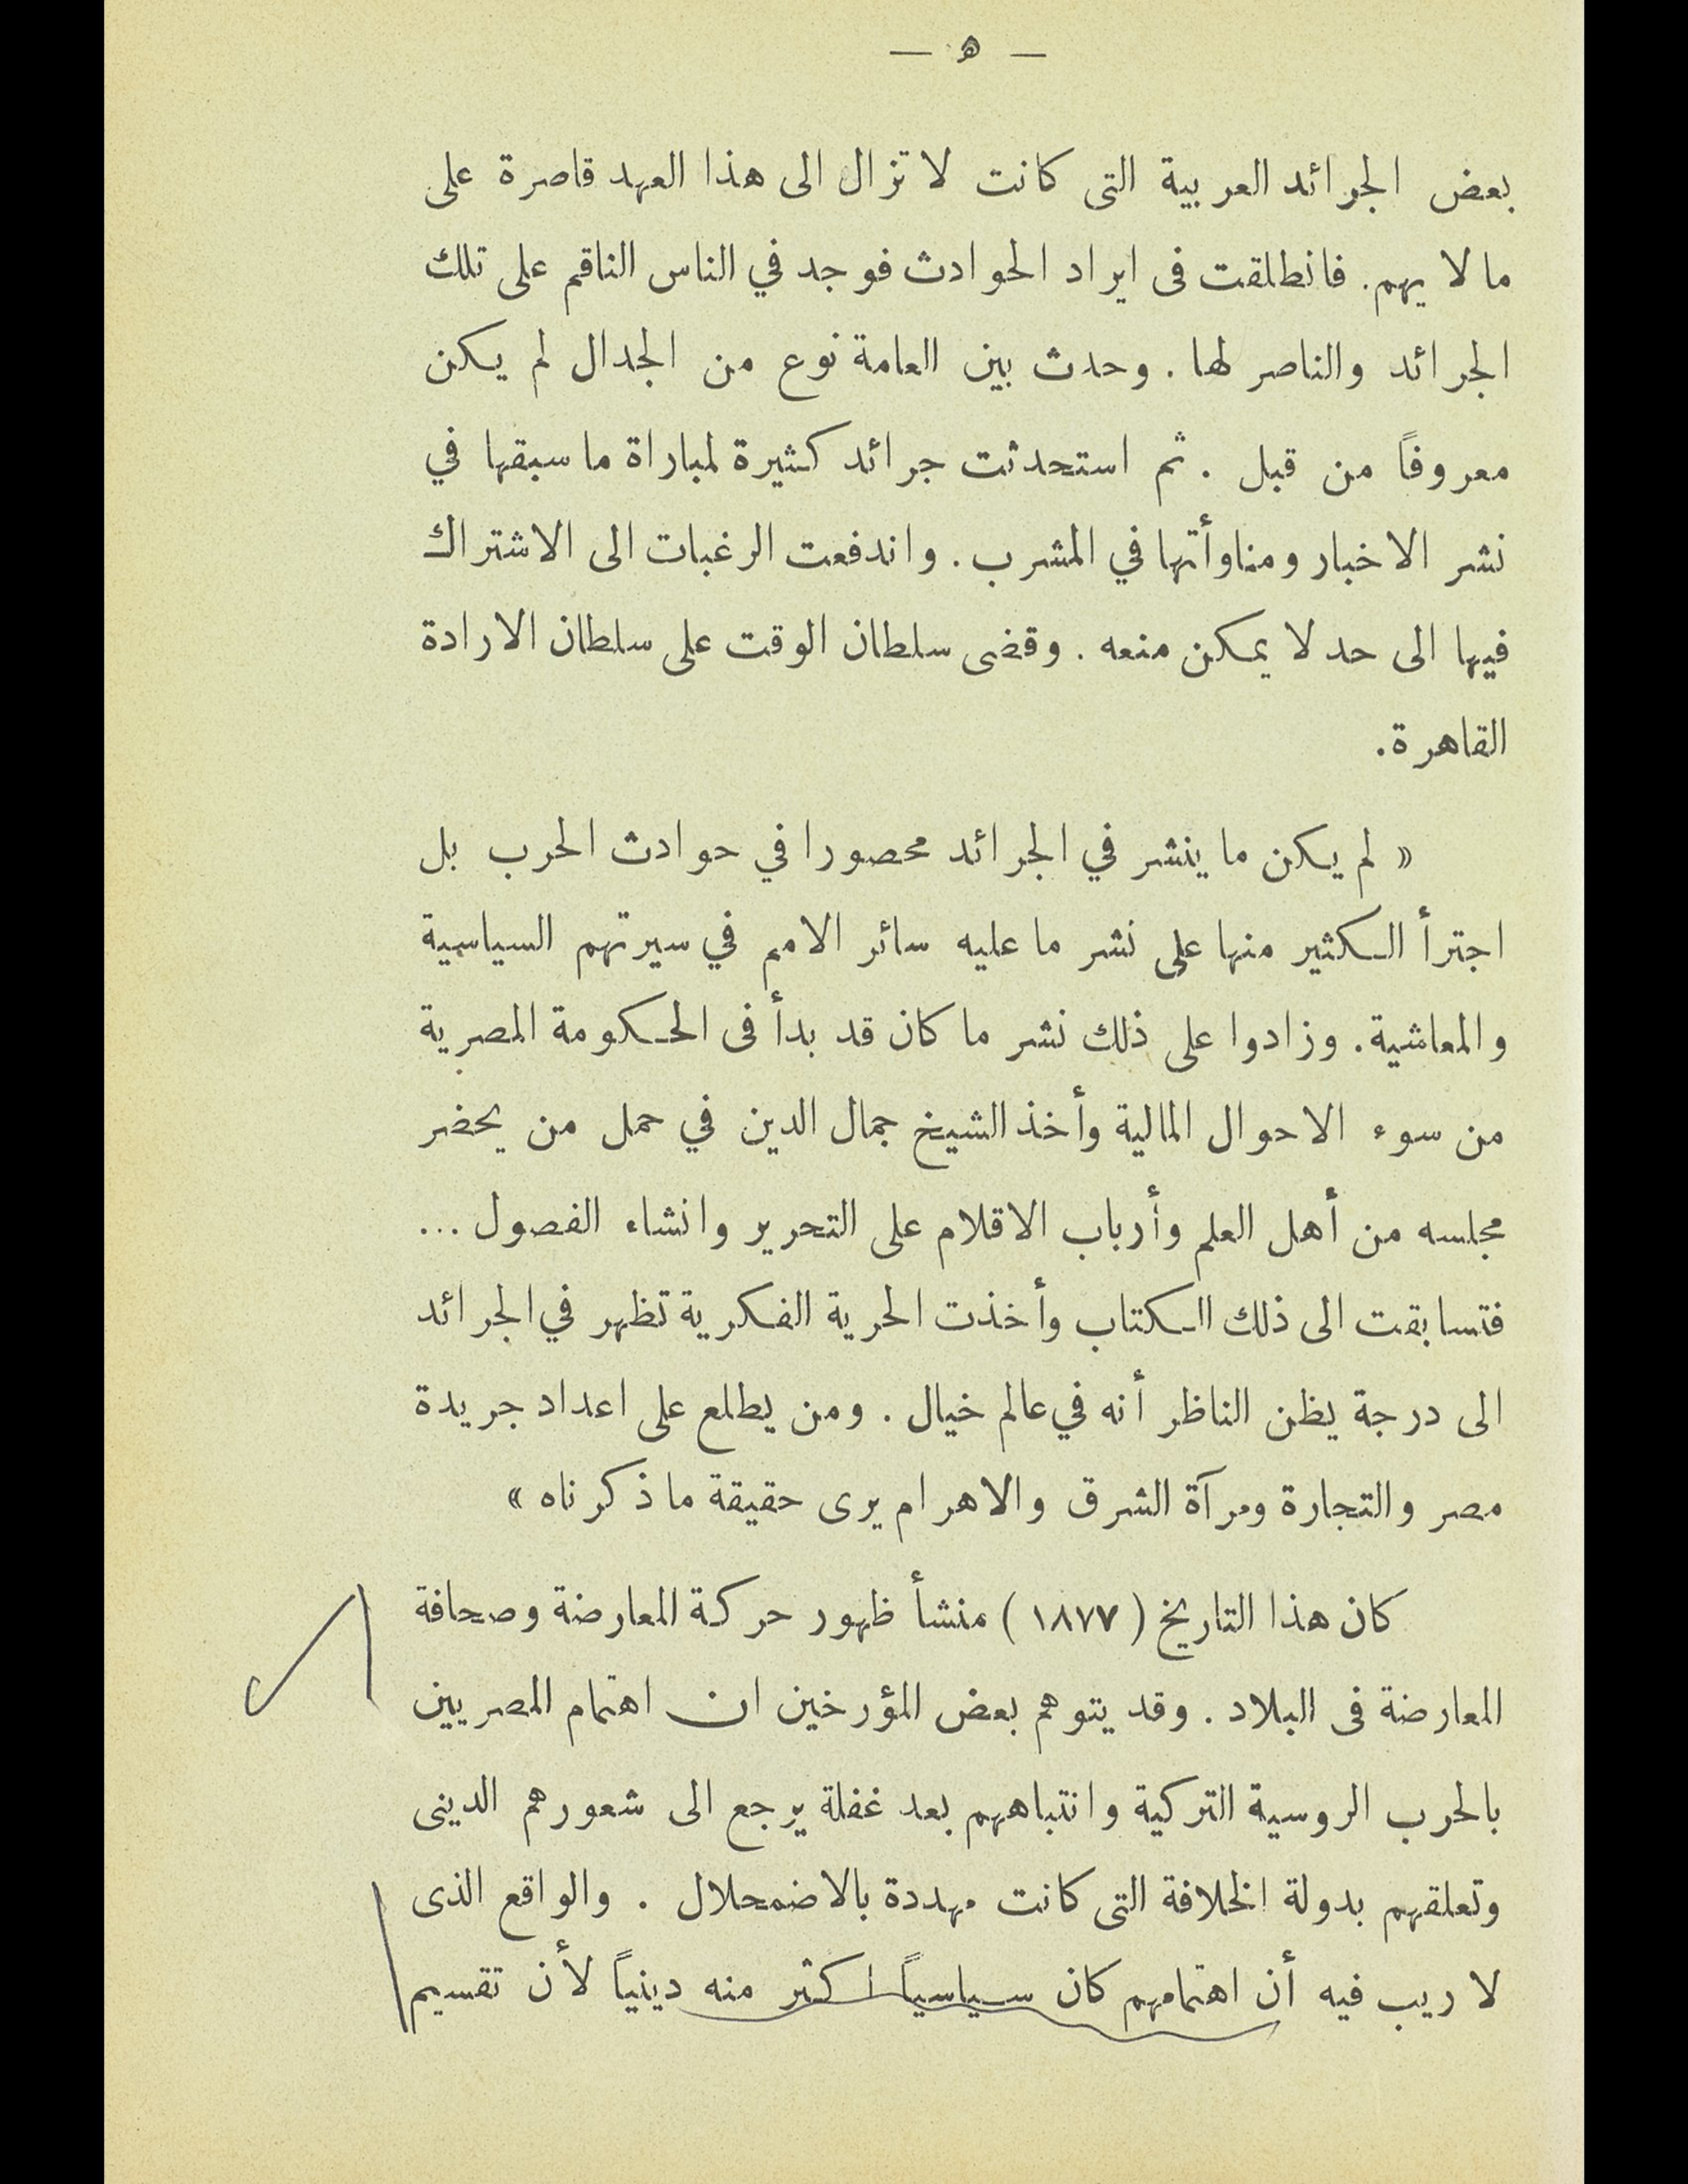 — ه —
بعض الجرائد العربية التى كانت لا تزال الى هذا العهد قاصرة على
ما لا يهم. فانطلقت فى ايراد الحوادث فوجد في الناس الناقم على تلك
الجرائد والناصر لها. وحدث بين العامة نوع من الجدال لم يكن
معروفاً من قبل. ثم استحدثت جرائد كثيرة لمباراة ما سبقها في
نشر الاخبار ومناوأتها في المشرب. واندفعت الرغبات الى الاشتراك
فيها الى حد لا يمكن منعه. وقضى سلطان الوقت على سلطان الارادة
القاهرة.
« لم يكن ما ينشر في الجرائد محصورا في حوادث الحرب بل
اجترأ الكثير منها على نشر ما عليه سائر الامم في سيرتهم السياسية
والمعاشية. وزادوا على ذلك نشر ما كان قد بدأ فى الحكومة المصرية
من سوء الاحوال المالية وأخذ الشيخ جمال الدين في حمل من يحضر
مجلسه من أهل العلم وأرباب الاقلام على التحرير وانشاء الفصول ...
فتسابقت الى ذلك الكتاب وأخذت الحرية الفكرية تظهر في الجرائد
الى درجة يظن الناظر أنه في عالم خيال. ومن يطلع على اعداد جريدة
مصر والتجارة ومرآة الشرق والاهرام يرى حقيقة ما ذكرناه »
كان هذا التاريخ ( ١٨٧٧ ) منشأ ظهور حركة المعارضة وصحافة
المعارضة فى البلاد. وقد يتوهم بعض المؤرخين ان اهتمام المصريين
بالحرب الروسية التركية وانتباههم بعد غفلة يرجع الى شعورهم الدينى
وتعلقهم بدولة الخلافة التى كانت مهددة بالاضمحلال. والواقع الذى
لا ريب فيه أن اهتمامهم كان سياسياً اكثر منه دينياً لأن تقسيم